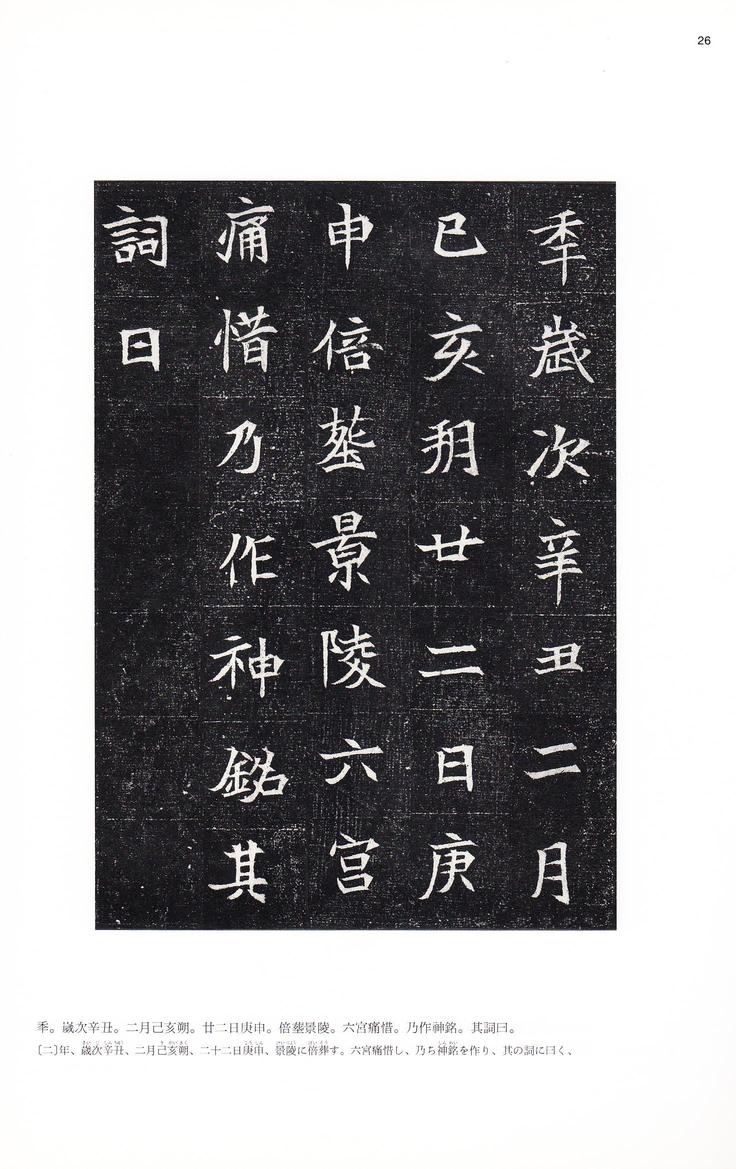 26
秊歲次辛丑二月
己亥朔廿二日庚
申倍塟景陵六宮
痛惜乃作神銘其
詞曰
秊。歲次辛丑。二月己亥朔。廿二日庚申。倍塟景陵。六宮痛惜。乃作神銘。其詞曰。
〔二〕年、歳次辛丑、二月己亥朔、二十二日庚申、景陵に倍葬す。六宮痛惜し、乃ち神銘を作り、其の詞に曰く、